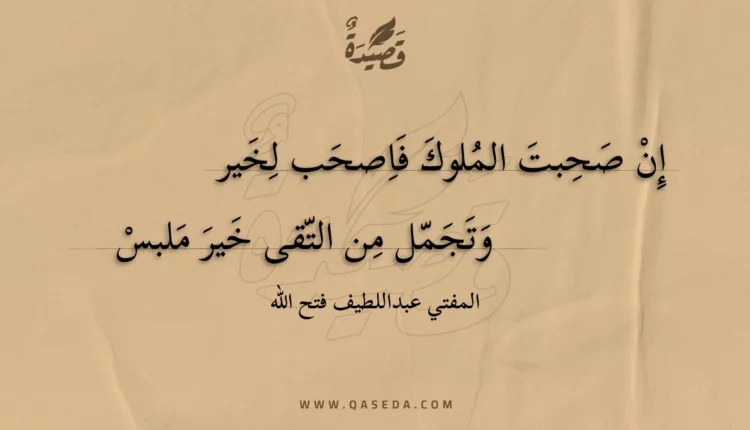 قَصِيْدَةٌ
إِنْ صَحِبتَ المُلوكَ فَاِصحَب لِخَير
وَتَجَمّل مِن التّقى خَيرَ مَلبسْ
المفتي عبداللطيف فتح الله
WWW.QASEDA.COM